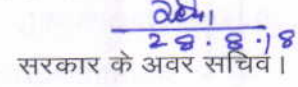 28.8.18
सरकार के अवर सचिव।